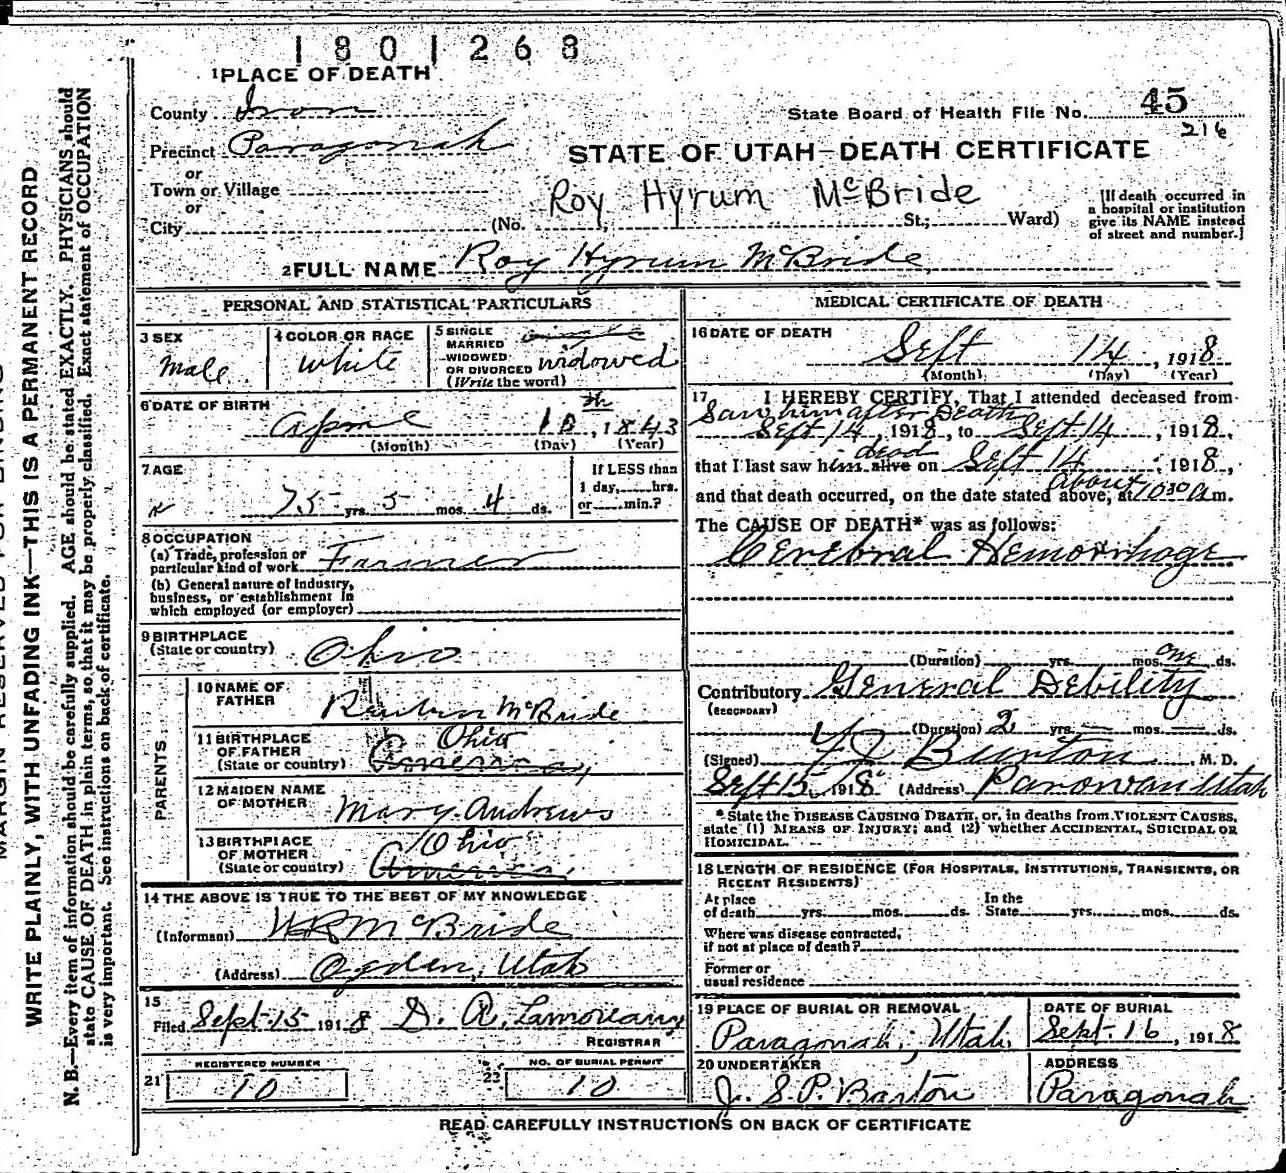 1801268
1 PLACE OF DEATH
County Iron
State Board of Health File No. 45
216
Precinct Paragonah
STATE OF UTAH—DEATH CERTIFICATE
or
Town or Village
or
Roy Hyrum McBride
City (No. St.; Ward)
[If death occurred in
a hospital or institution
give its NAME instead
of street and number.]
2 FULL NAME Roy Hyrum McBride
PERSONAL AND STATISTICAL PARTICULARS
3 SEX
Male
4 COLOR OR RACE
White
5 SINGLE
MARRIED
WIDOWED
OR DIVORCED
(Write the word)
widowed
6 DATE OF BIRTH
April 10th, 1843
(Month) (Day) (Year)
7 AGE
75 yrs. 5 mos. 4 ds.
If LESS than
1 day, hrs.
or min.?
8 OCCUPATION
(a) Trade, profession or
particular kind of work Farmer
(b) General nature of Industry,
business, or establishment in
which employed (or employer)
9 BIRTHPLACE
(State or country) Ohio
PARENTS
10 NAME OF
FATHER Reuben McBride
11 BIRTHPLACE
OF FATHER
(State or country)
Ohio
America
12 MAIDEN NAME
OF MOTHER Mary Andrews
13 BIRTHPLACE
OF MOTHER
(State or country)
Ohio
America
14 THE ABOVE IS TRUE TO THE BEST OF MY KNOWLEDGE
(Informant) McBride
(Address) Ogden, Utah
15
Filed Sept 15 1918 D. A. Lamoreaux
REGISTRAR
21
REGISTERED NUMBER
10
NO. OF BURIAL PERMIT
10
MEDICAL CERTIFICATE OF DEATH
16 DATE OF DEATH
Sept 14, 1918
(Month) (Day) (Year)
17 I HEREBY CERTIFY, That I attended deceased from
Saw him after Death
Sept 14 1918, to Sept 14, 1918,
dead
that I last saw him alive on Sept 14, 1918,
about
and that death occurred, on the date stated above, at 10 30 a m.
The CAUSE OF DEATH* was as follows:
Cerebral Hemorrhage
(Duration) yrs. mos. one ds.
Contributory General Debility
(SECONDARY)
(Duration) 2 yrs. — mos. — ds.
(Signed) Burton M. D.
Sept 15, 1918 (Address) Parowan Utah
* State the DISEASE CAUSING DEATH, or, in deaths from VIOLENT CAUSES,
state (1) MEANS OF INJURY; and (2) whether ACCIDENTAL, SUICIDAL OR
HOMICIDAL.
18 LENGTH OF RESIDENCE (FOR HOSPITALS, INSTITUTIONS, TRANSIENTS, OR
RECENT RESIDENTS)
At place
of death yrs. mos. ds.
In the
State yrs. mos. ds.
Where was disease contracted,
if not at place of death?
Former or
usual residence
19 PLACE OF BURIAL OR REMOVAL
Paragonah, Utah.
DATE OF BURIAL
Sept. 16, 1918
20 UNDERTAKER
J. S. P. Barton
ADDRESS
Paragonah
READ CAREFULLY INSTRUCTIONS ON BACK OF CERTIFICATE
WRITE PLAINLY, WITH UNFADING INK—THIS IS A PERMANENT RECORD
N. B.—Every item of information should be carefully supplied. AGE should be stated EXACTLY. PHYSICIANS should
state CAUSE OF DEATH in plain terms, so that it may be properly classified. Exact statement of OCCUPATION
is very important. See instructions on back of certificate.